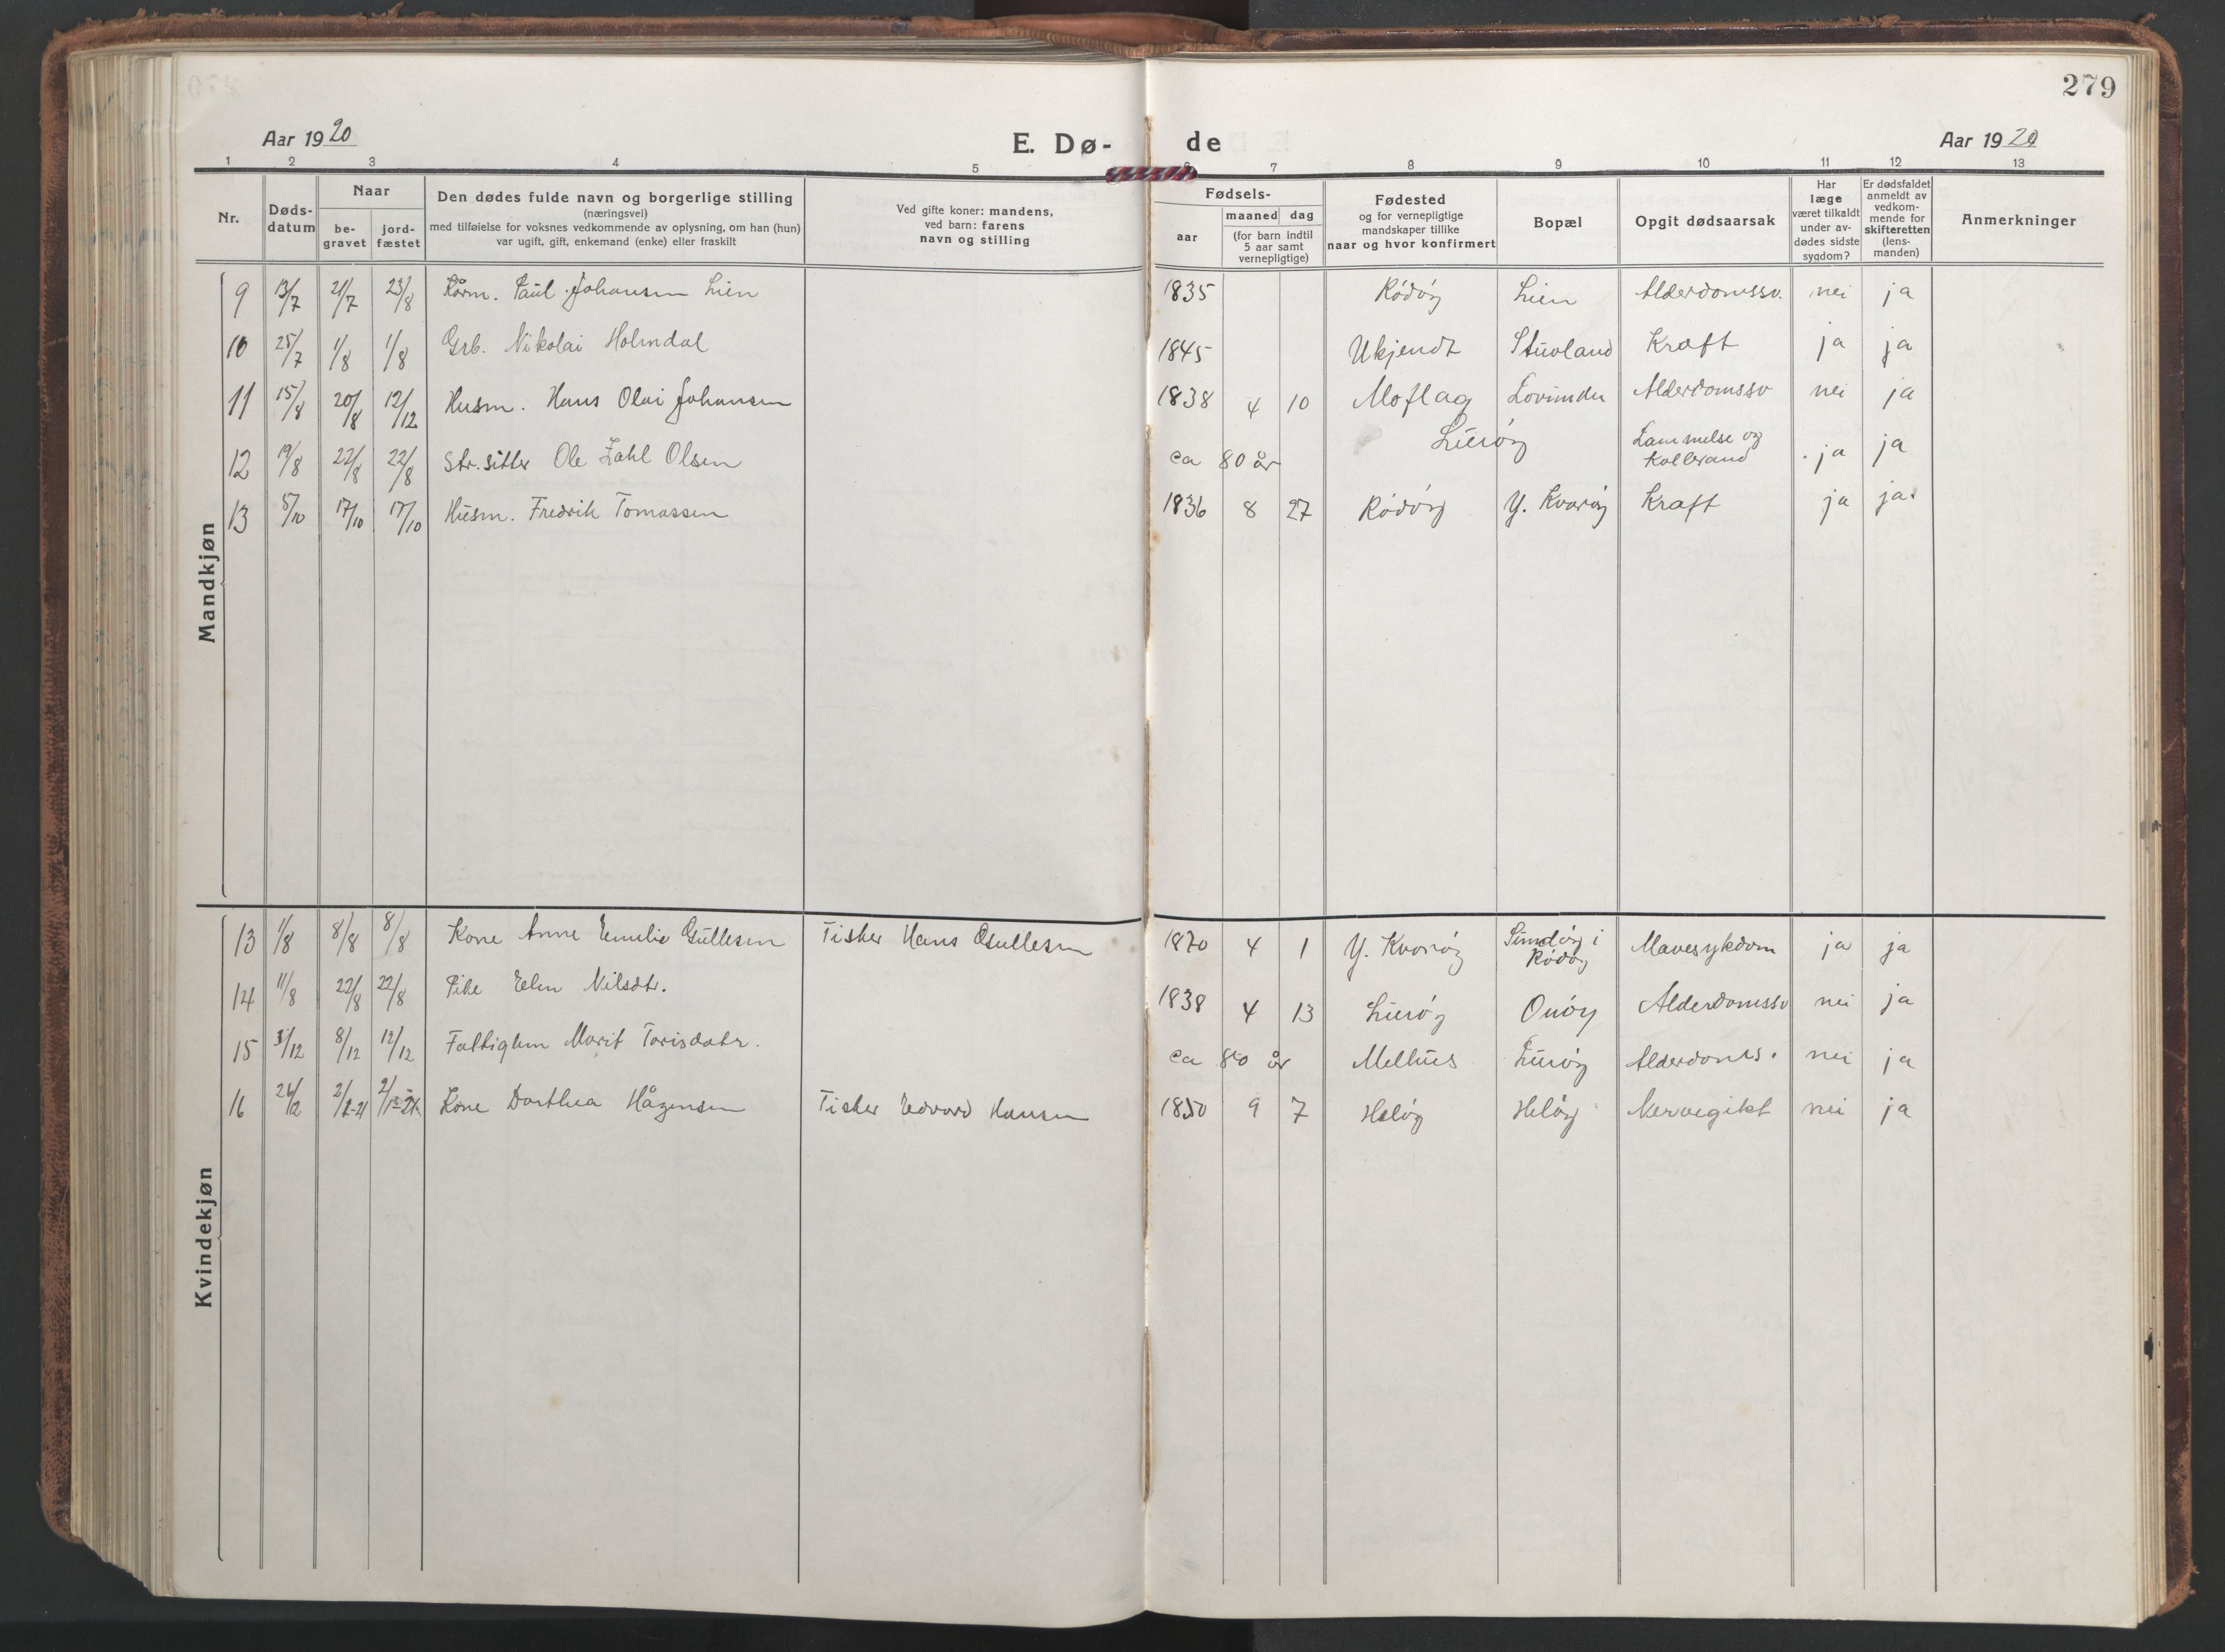 279
Aar 1920
E. Dø-
de
Aar 1920
1 2 3 4 5 6 7 8 9 10 11 12 13
Nr.
Døds-
datum
Naar
be-
gravet
jord-
fæstet
Den dødes fulde navn og borgerlige stilling
(næringsvei)
med tilføielse for voksnes vedkommende av oplysning, om han (hun)
var ugift, gift, enkemand (enke) eller fraskilt
Ved gifte koner: mandens,
ved barn: farens
navn og stilling
Fødsels-
aar
maaned dag
(for barn indtil
5 aar samt
vernepligtige)
Fødested
og for vernepligtige
mandskaper tillike
naar og hvor konfirmert
Bopæl
Opgit dødsaarsak
Har
læge
været tilkaldt
under av-
dødes sidste
sygdom?
Er dødsfaldet
anmeldt av
vedkom-
mende for
skifteretten
(lens-
manden)
Anmerkninger
Mandkjøn
9 13/7 21/7 23/8 Kårm. Paul Johansen Lien 1835 Rødøy Lien Alderdomssv. nei ja
10 25/7 1/8 1/8 Grb. Nikolai Holmdal 1845 Ukjendt Stuvland Kræft ja ja
11 15/8 20/8 12/12 Husm. Hans Olai Johansen 1838 4 10 Moflag Lovunden Alderdomssv nei ja
12 19/8 22/8 22/8 Str.sitter Ole Zahl Olsen ca 80 år Lurøy Lammelse og
Kolbrand ja ja
13 5/10 17/10 17/10 Husm. Fredrik Tomassen 1836 8 27 Rødøy Y. Kvarøy Kræft ja ja.
Kvindekjøn
13 1/8 8/8 8/8 Kone Anne Emilie Gullesen Fisker Hans Gullesen 1870 4 1 Y. Kvarøy i
Rødøy Mavesykdom ja ja
14 11/8 22/8 22/8 Pike Elen Nilsdtr. 1838 4 13 Lurøy Onøy Alderdomssv nei ja
15 3/12 8/12 12/12 Fattiglem Marit Torisdatr. ca 80 år Melhus Lurøy Alderdoms. nei ja
16 26/12 2/1-21 2/1-21 Kone Dorthea Hågensen Fisker Edvard Hansen 1850 9 7 Heløy Heløy Nervegikt nei ja